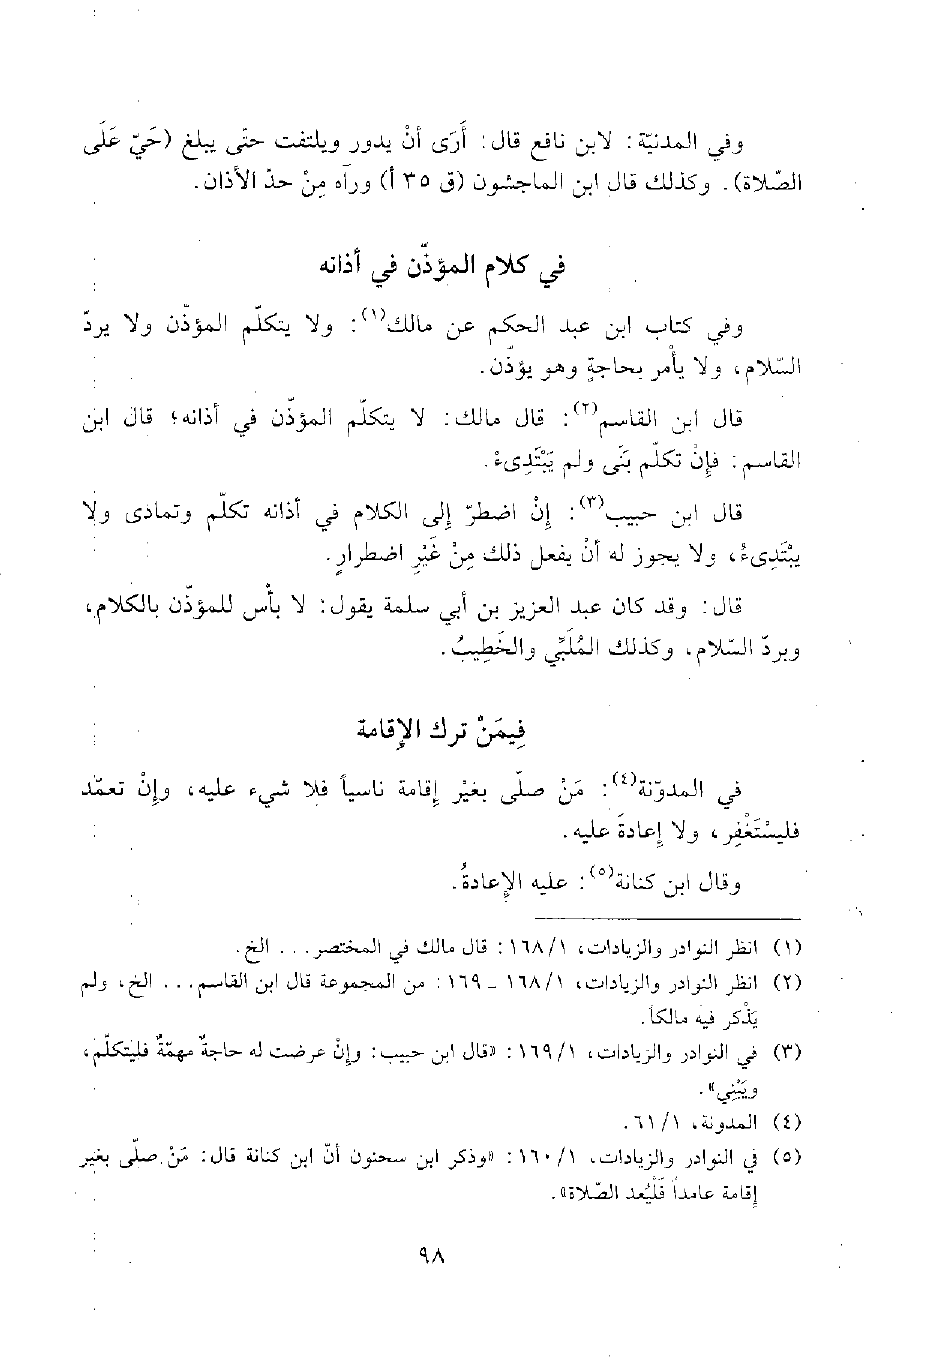 وفي المدنيّة: لابن نافع قال: أَرَى أنْ يدور ويلتفت حتّى يبلغ (حَيّ عَلَى
الصّلاة). وكذلك قال ابن الماجشون (ق ٣٥ أ) ورآه مِنْ حدّ الأذان.
في كلام المؤذّن في أذانه
وفي كتاب ابن عبد الحكم عن مالك(١): ولا يتكلّم المؤذّن ولا يردّ
السّلام، ولا يأْمر بحاجةٍ وهو يؤذّن.
قال ابن القاسم(٢): قال مالك: لا يتكلّم المؤذّن في أذانه؛ قال ابن
القاسم: فإنْ تكلّم بَنَى ولم يَبْتَدِىءْ.
قال ابن حبيب(٣): إِنْ اضطرّ إلى الكلام في أذانه تكلّم وتمادى ولا
يبْتَدِىءُ، ولا يجوز له أنْ يفعل ذلك مِنْ غَيْرِ اضطرارٍ.
قال: وقد كان عبد العزيز بن أبي سلمة يقول: لا بأْس للمؤذّن بالكلام،
وبردّ السّلام، وكذلك المُلَبِّي والخَطِيبُ.
فِيمَنْ ترك الإقامة
في المدوّنة(٤): مَنْ صلّى بغيْر إِقامة ناسياً فلا شيء عليه، وإِنْ تعمّد
فليسْتَغْفِر، ولا إِعادةَ عليه.
وقال ابن كنانة(٥): عليه الإِعادةُ.
(١) انظر النوادر والزيادات، ١٦٨/١: قال مالك في المختصر... الخ.
(٢) انظر النوادر والزيادات، ١٦٨/١ ـ ١٦٩: من المجموعة قال ابن القاسم... الخ، ولم
يَذْكر فيه مالكاً.
(٣) في النوادر والزيادات، ١٦٩/١: «قال ابن حبيب: وإنْ عرضت له حاجةٌ مهمّةٌ فليتكلّم،
ويَبْنِي».
(٤) المدونة، ٦١/١.
(٥) في النوادر والزيادات، ١٦٠/١: «وذكر ابن سحنون أنّ ابن كنانة قال: مَنْ صلّى بغير
إقامة عامداً فَلْيُعد الصّلاة».
٩٨